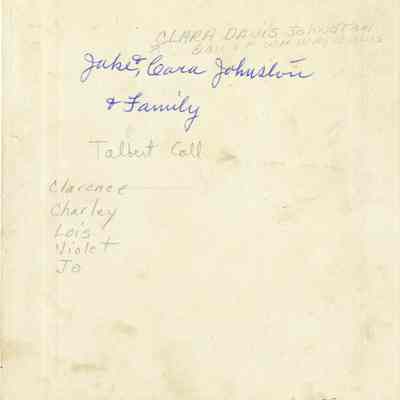 CLARA DAVIS Johnston
Jake &, Cara Johnston
& Family
Talbert Coll
Clarence
Charley
Lois
Violet
Jo